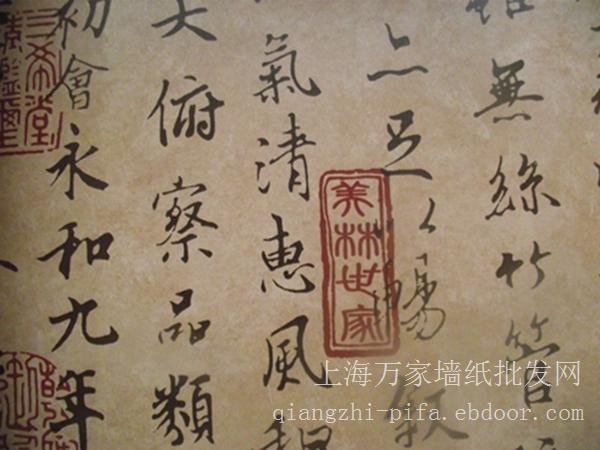 無絲竹管
亦足以暢敘
氣清惠風和
大俯察品類
初會永和九年
美林世家
三希堂
精鑑璽
上海万家墙纸批发网
qiangzhi-pifa.ebdoor.com